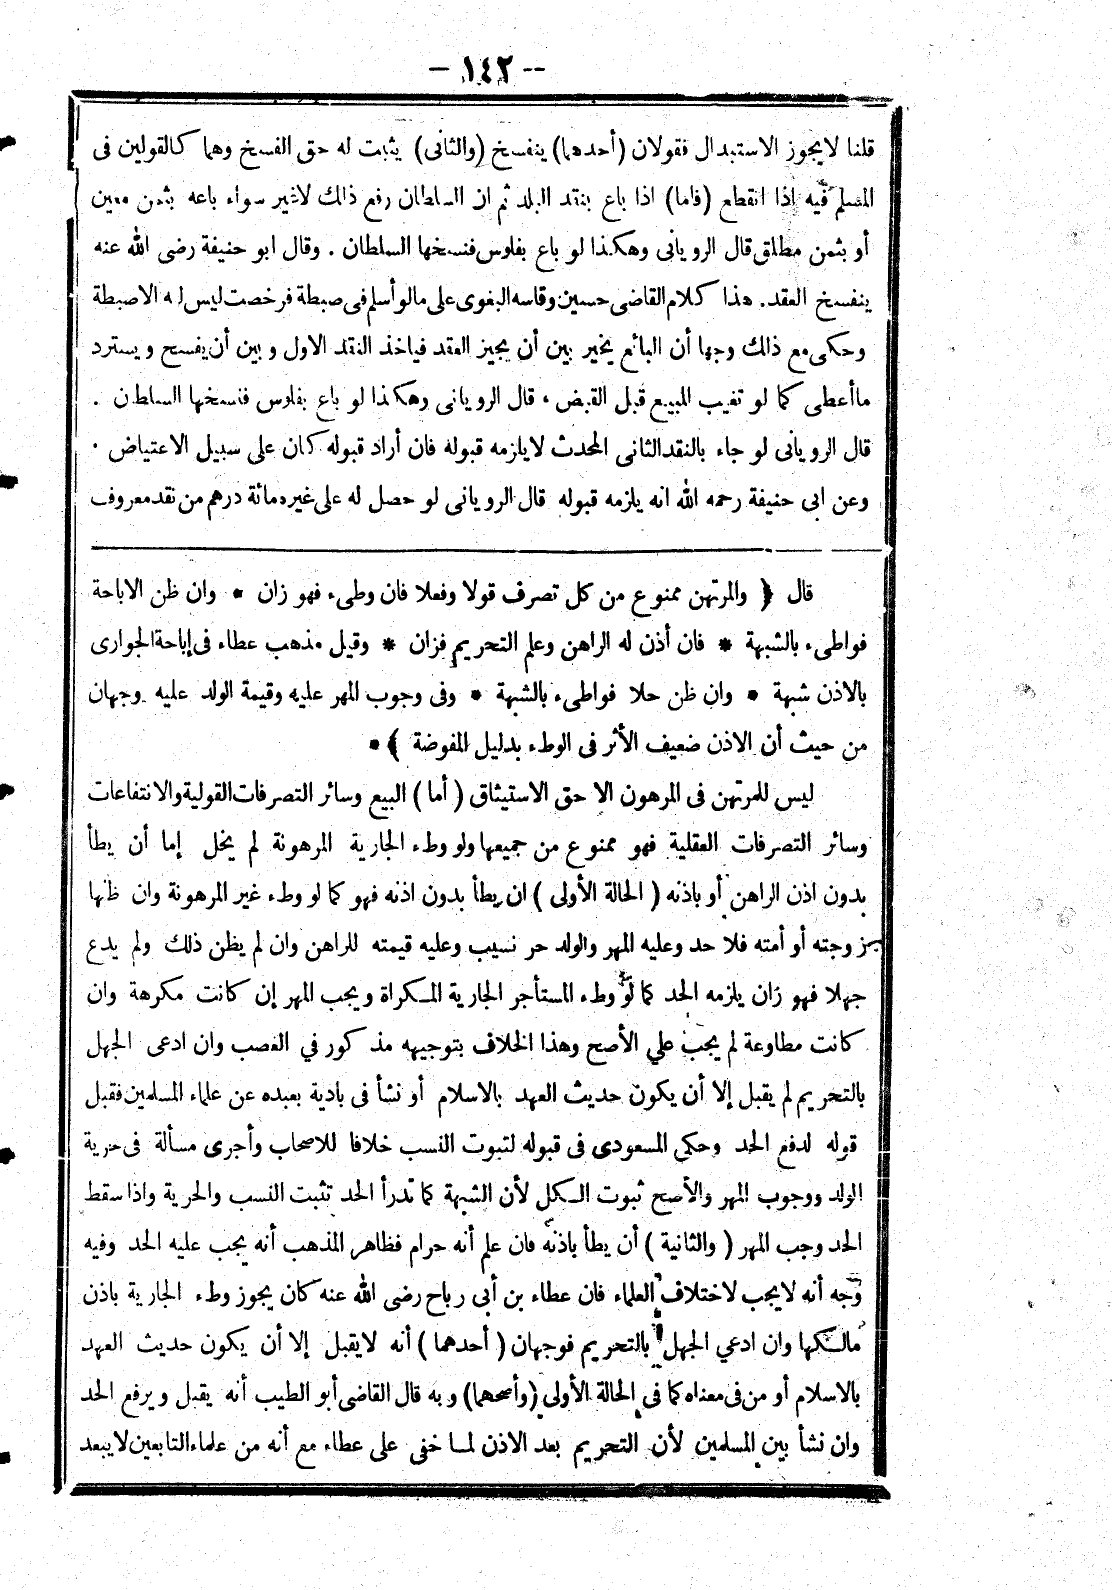 -- ١٤٢ --
قلنا لا يجوز الاستبدال فقولان (أحدهما) ينفسخ (والثانى) يثبت له حق الفسخ وهما كالقولين فى
المسلم فيه إذا انقطع (فاما) اذا باع بنقد البلد ثم ان السلطان رفع ذلك لاغير سواء باعه بثمن معين
أو بثمن مطلق قال الرويانى وهكذا لو باع بفلوس فنسخها السلطان . وقال ابو حنيفة رضى الله عنه
ينفسخ العقد. هذا كلام القاضى حسين وقاسه البغوى على مالو أسلم فى صبطة فرخصت ليس له الاصبطة
وحكى مع ذلك وجها أن البائع يخير بين أن يجيز العقد فياخذ النقد الاول وبين أن يفسح ويسترد
ماأعطى كما لو تغيب المبيع قبل القبض ، قال الرويانى وهكذا لو باع بفلوس فنسخها السلطان .
قال الرويانى لو جاء بالنقد الثانى المحدث لا يلزمه قبوله فان أراد قبوله كان على سبيل الاعتياض .
وعن ابى حنيفة رحمه الله انه يلزمه قبوله قال الرويانى لو حصل له على غيره مائة درهم من نقد معروف
قال ﴿ والمرتهن ممنوع من كل تصرف قولا وفعلا فان وطىء فهو زان * وان ظن الاباحة
فواطىء بالشبهة * فان أذن له الراهن وعلم التحريم فزان * وقيل مذهب عطاء فى إباحة الجوارى
بالاذن شبهة * وان ظن حلا فواطىء بالشبهة * وفى وجوب المهر عليه وقيمة الولد عليه وجهان
من حيث أن الاذن ضعيف الأثر فى الوطء بدليل المفوضة ﴾ *
ليس للمرتهن فى المرهون الا حق الاستيثاق ( أما ) البيع وسائر التصرفات القولية والانتفاعات
وسائر التصرفات العقلية فهو ممنوع من جميعها ولو وطء الجارية المرهونة لم يخل إما أن يطأ
بدون اذن الراهن أو باذنه ( الحالة الأولى ) ان يطأ بدون اذنه فهو كما لو وطء غير المرهونة وان ظنها
زوجته أو أمته فلا حد وعليه المهر والولد حر نسيب وعليه قيمته للراهن وان لم يظن ذلك ولم يدع
جهلا فهو زان يلزمه الحد كما لو وطء المستأجر الجارية المسكراة ويجب المهر إن كانت مكرهة وان
كانت مطاوعة لم يجب علي الأصح وهذا الخلاف بتوجيهه مذكور في الغصب وان ادعى الجهل
بالتحريم لم يقبل إلا أن يكون حديث العهد بالاسلام أو نشأ فى بادية بعيده عن علماء المسلمين فقبل
قوله لدفع الحد وحكي المسعودى فى قبوله لثبوت النسب خلافا للاصحاب وأجرى مسألة فى حرية
الولد ووجوب المهر والأصح ثبوت السكل لأن الشبهة كما تدرأ الحد تثبت النسب والحرية واذا سقط
الحد وجب المهر ( والثانية ) أن يطأ باذنه فان علم أنه حرام فظاهر المذهب أنه يجب عليه الحد وفيه
وجه أنه لا يجب لاختلاف العلماء فان عطاء بن أبى رباح رضى الله عنه كان يجوز وطء الجارية باذن
مالسكها وان ادعي الجهل بالتحريم فوجهان ( أحدهما ) أنه لا يقبل إلا أن يكون حديث العهد
بالاسلام أو من فى معناه كما فى الحالة الأولى (وأصحهما) وبه قال القاضى أبو الطيب أنه يقبل ويرفع الحد
وان نشأ بين المسلمين لأن التحريم بعد الاذن لما خفى على عطاء مع أنه من علماء التابعين لا يبعد